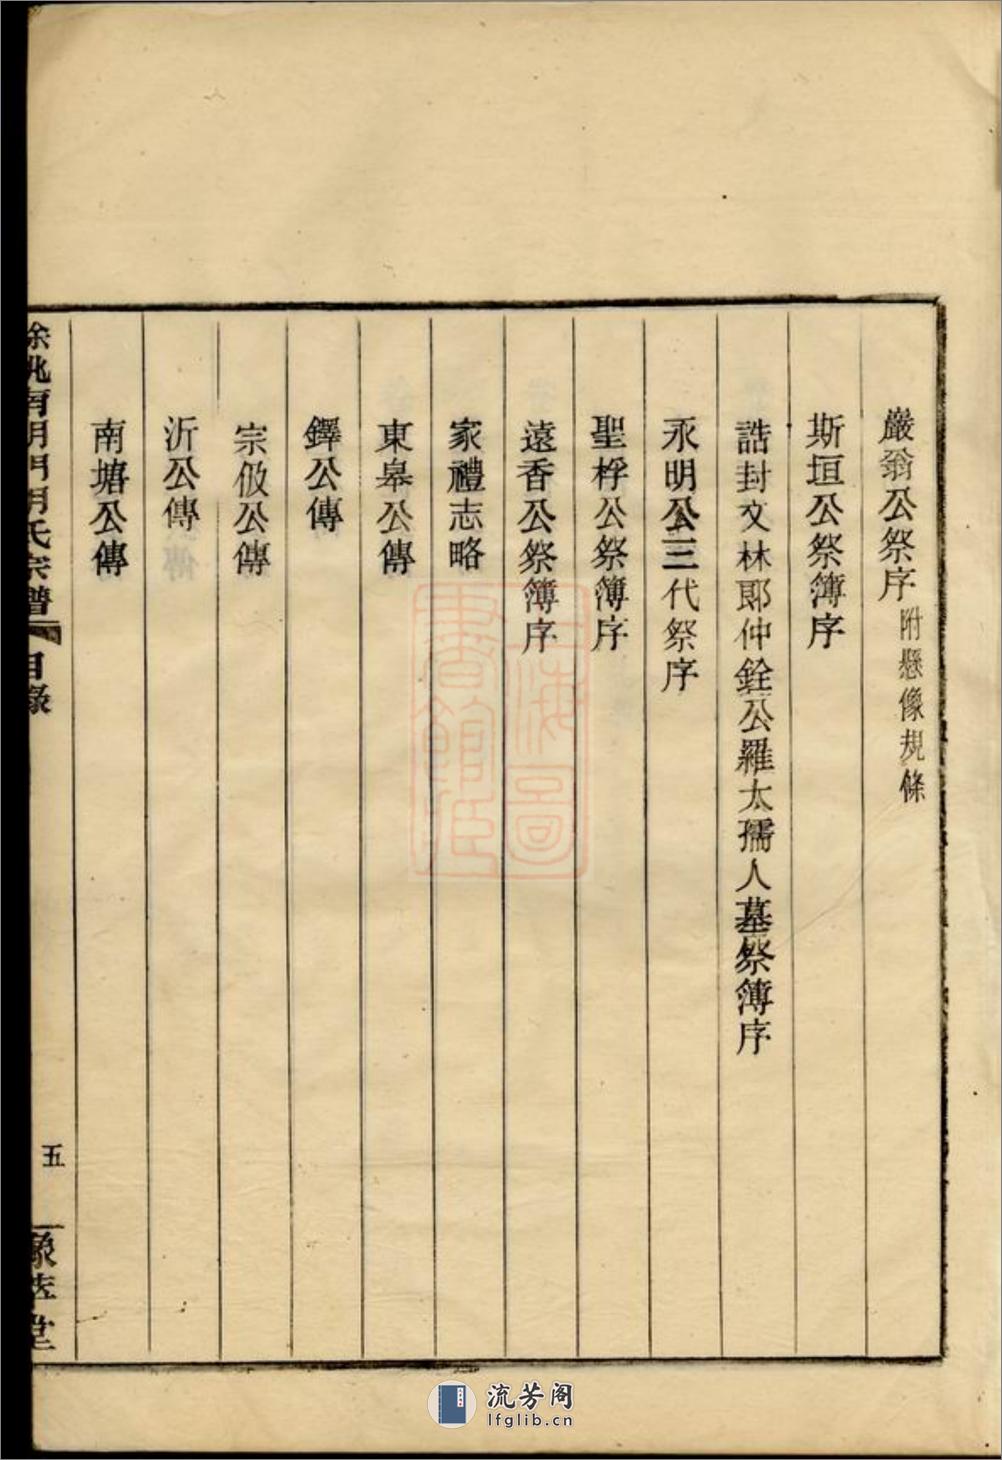 嚴翁公祭序 附懸像規條
斯垣公祭簿序
誥封文林郎仲銓公羅太孺人墓祭簿序
永明公三代祭序
聖桴公祭簿序
遠香公祭簿序
家禮志略
東皋公傳
鐸公傳
宗伋公傳
沂公傳
南塘公傳
余姚
氏宗譜 目錄
五
堂
上海圖書館藏
流芳阁
lfglib.cn